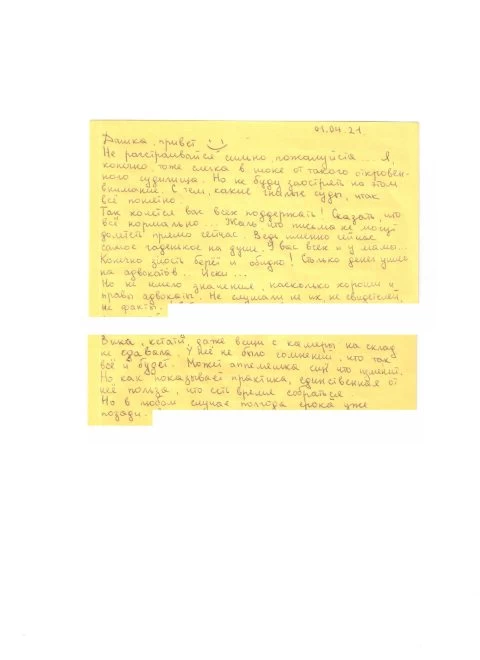 01.04.21.
Дашка, привет :)
Не расстраивайся сильно, пожалуйста... Я,
конечно, тоже слегка в шоке от такого откровен-
ного судилища. Но не буду заострять на этом
внимание. С тем, какие гнилые суды, итак
всё понятно.
Так хочется вас всех поддержать! Сказать, что
всё нормально... Жаль что письма не могут
долететь прямо сейчас. Ведь именно сейчас
самое гаденькое на душе. У вас всех и у мамы...
Конечно злость берёт и обидно! Столько денег ушло
на адвокатов.. Иски...
Но не имело значения, насколько хороши и
правы адвокаты. Не слушали не их, не свидетелей,
не факты.
Вика, кстати, даже вещи с камеры на склад
не сдавала. У неё не было сомнений, что так
всё и будет. Может аппеляшка
Но как показывает практика, единственная от
неё польза, что есть время собраться.
Но в любом случае полгода срока уже
позади.